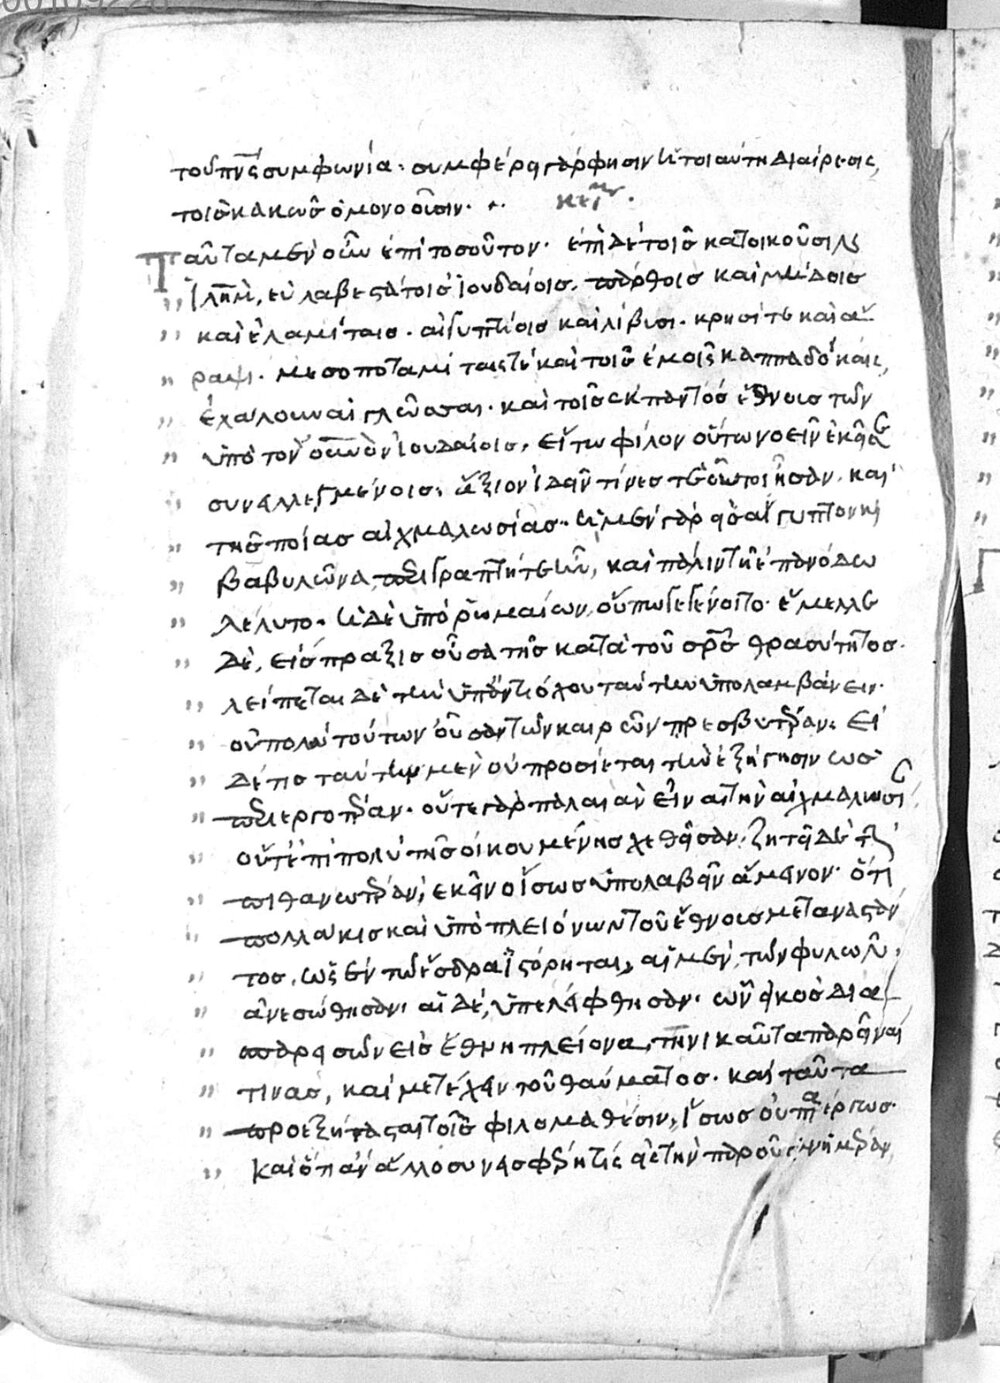 τοῦ πνς συμφωνία· συμφέρει γὰρ φησιν ἡ τοιαύτη διαίρεσις,
τοῖς κακῶς ὁμονοοῦσιν·
κείμ
Ταῦτα μὲν οὖν ἐπὶ τοσοῦτον· ἐπεὶ δὲ τοῖς κατοικοῦσιν
ἱλημ, εὐλαβεστάτοις ἰουδαίοις, πάρθοις καὶ μήδοις
καὶ ἐλαμίταις· αἰγυπτίοις καὶ λίβυσι· κρησί τε καὶ ἄ
ραψι· μεσοποταμίταις τὲ καὶ τοῖς ἐμοῖς καππαδόκαις,
ἐλάλουν αἱ γλῶσσαι· καὶ τοῖς ἐκ παντὸς ἔθνους τῶν
ὑπὸ τὸν οὐνὸν ἰουδαίοις, εἴ τω φίλον οὕτω νοεῖν ἐκεῖσε
συνειλεγμένοις, ἄξιον ἰδεῖν τίνες τε οὗτοι ἦσαν· καὶ
τῆς ποίας αἰχμαλωσίας· ἡ μὲν γὰρ εἰς αἴγυπτον καὶ
βαβυλῶνα, περιγραπτή τε ἦν, καὶ πάλιν τῇ ἐπανόδω
λέλυτο· ἡ δὲ ὑπὸ ῥωμαίων, οὔπω γεγένητο· ἔμελλε
δὲ, εἴσπραξις οὖσα τῆς κατὰ τοῦ σρς θρασύτητος·
λείπεται δὲ τὴν ὑπὸ ἀντιόχου ταύτην ὑπολαμβάνειν·
οὐ πολὺ τούτων οὖσαν τῶν καιρῶν πρεσβυτέραν· Εἰ
δέ τις ταύτην μὲν οὐ προσίεται τὴν ἐξήγησιν ὡς
περιεργοτέραν· οὔτε γὰρ παλαιὰν εἶναι τὴν αἰχμαλωσί
οὔτ' ἐπὶ πολὺ τῆς οἰκουμένης χεθεῖσαν· ζητεῖ δὲ τὴν
πιθανωτέραν, ἐκεῖνο ἴσως ὑπολαβεῖν ἄμεινον· ὅτι
πολλάκις καὶ ὑπὸ πλειόνων τοῦ ἔθνους μεταναστάν
τος, ὡς ἐν τῶ ἔσδρα ἱστόρηται, αἱ μὲν τῶν φυλῶν,
ἀνεσώθησαν· αἱ δὲ, ὑπελείφθησαν· ὧν εἰκὸς δια
σπαρεισῶν εἰς ἔθνη πλείονα, τηνικαῦτα παρεῖναί
τινας, καὶ μετέχειν τοῦ θαύματος· καὶ ταῦτα
προεξήτασται τοῖς φιλομαθέσιν, ἴσως οὐ περιέργως·
καὶ ὅτι ἂν ἄλλο συνεισφέρῃ τίς εἰς τὴν παροῦσαν ἡμέραν